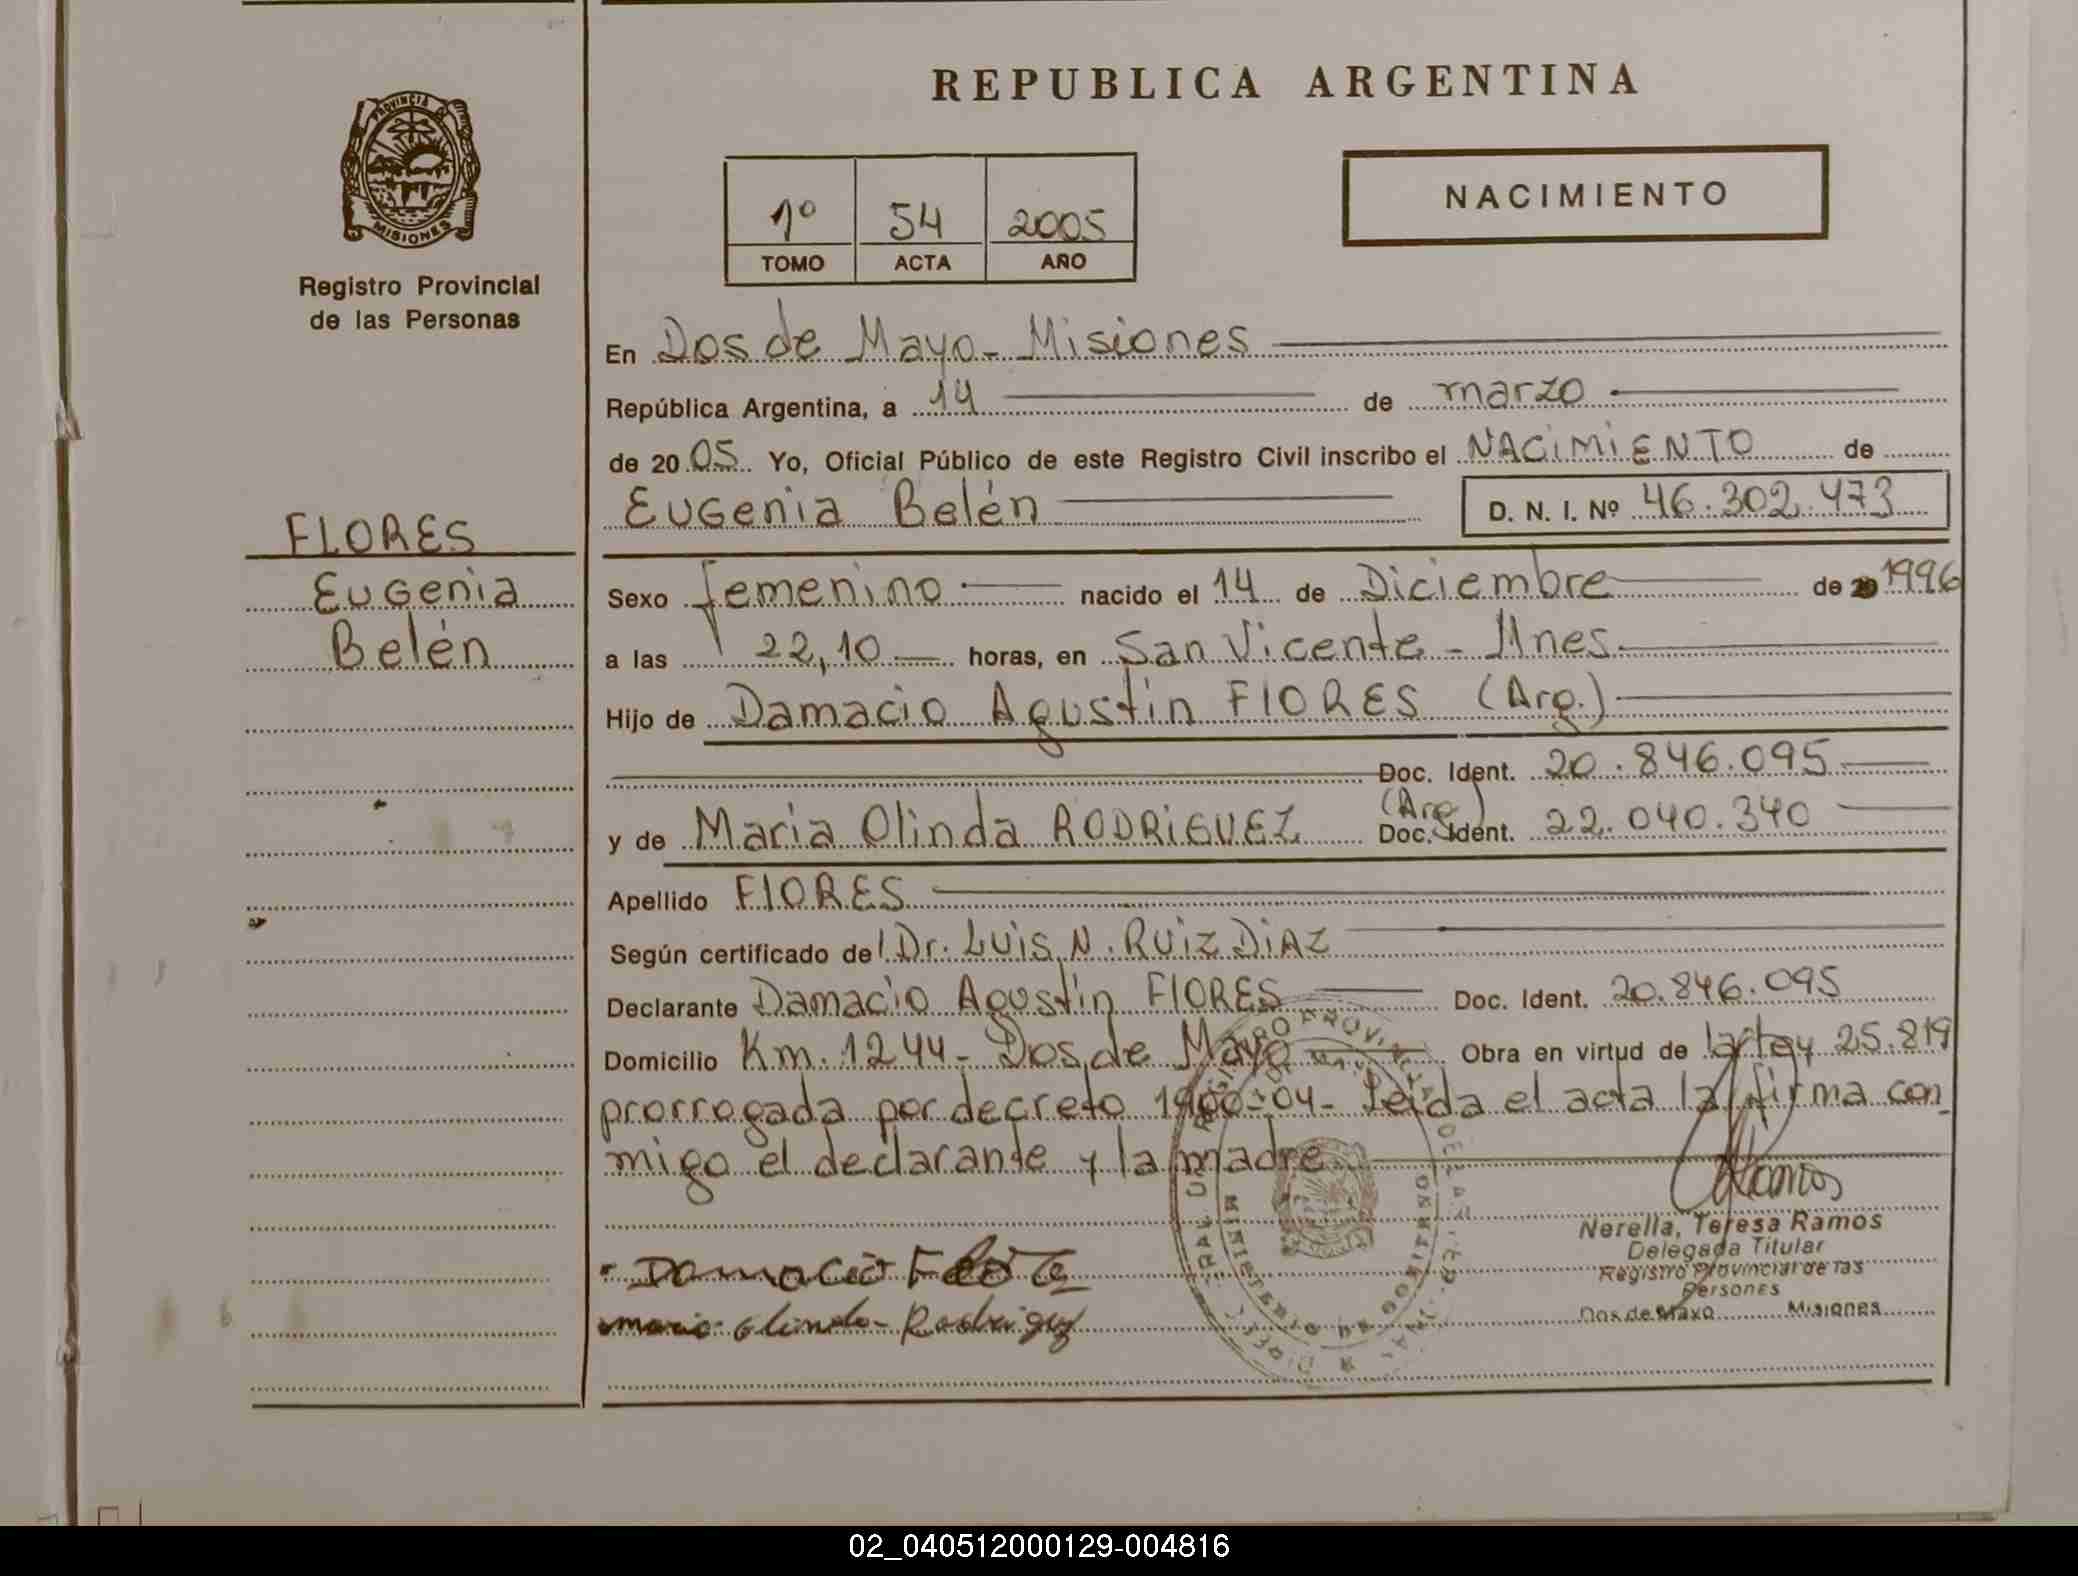 REPUBLICA ARGENTINA
PROVINCIA
MISIONES
Registro Provincial
de las Personas
1º 54 2005
TOMO ACTA AÑO
NACIMIENTO
En Dos de Mayo - Misiones
República Argentina, a 14 de marzo
de 2005 Yo, Oficial Público de este Registro Civil inscribo el NACIMIENTO de
Eugenia Belén D. N. I. Nº 46.302.473
FLORES
Eugenia
Belén
Sexo femenino nacido el 14 de Diciembre de 1996
a las 22,10 horas, en San Vicente - Mnes
Hijo de Damacio Agustín FlORES (Arg.)
Doc. Ident. 20.846.095
y de Maria Olinda RODRIGUEZ (Arg) Doc. Ident. 22.040.340
Apellido FlORES
Según certificado del Dr. Luis N. Ruiz Diaz
Declarante Damacio Agustín FlORES Doc. Ident. 20.846.095
Domicilio Km. 1244 - Dos de Mayo Obra en virtud de la ley 25.819
prorrogada por decreto -04- Leída el acta la firma con
migo el declarante y la madre
Ramos
Nerella, Teresa Ramos
Delegada Titular
Registro Provincial de las
Persones
Dos de Mayo Misiones
Damacio Flore
maria olinda - Rodriguez
MINISTERIO DE GOBIERNO
02_040512000129-004816